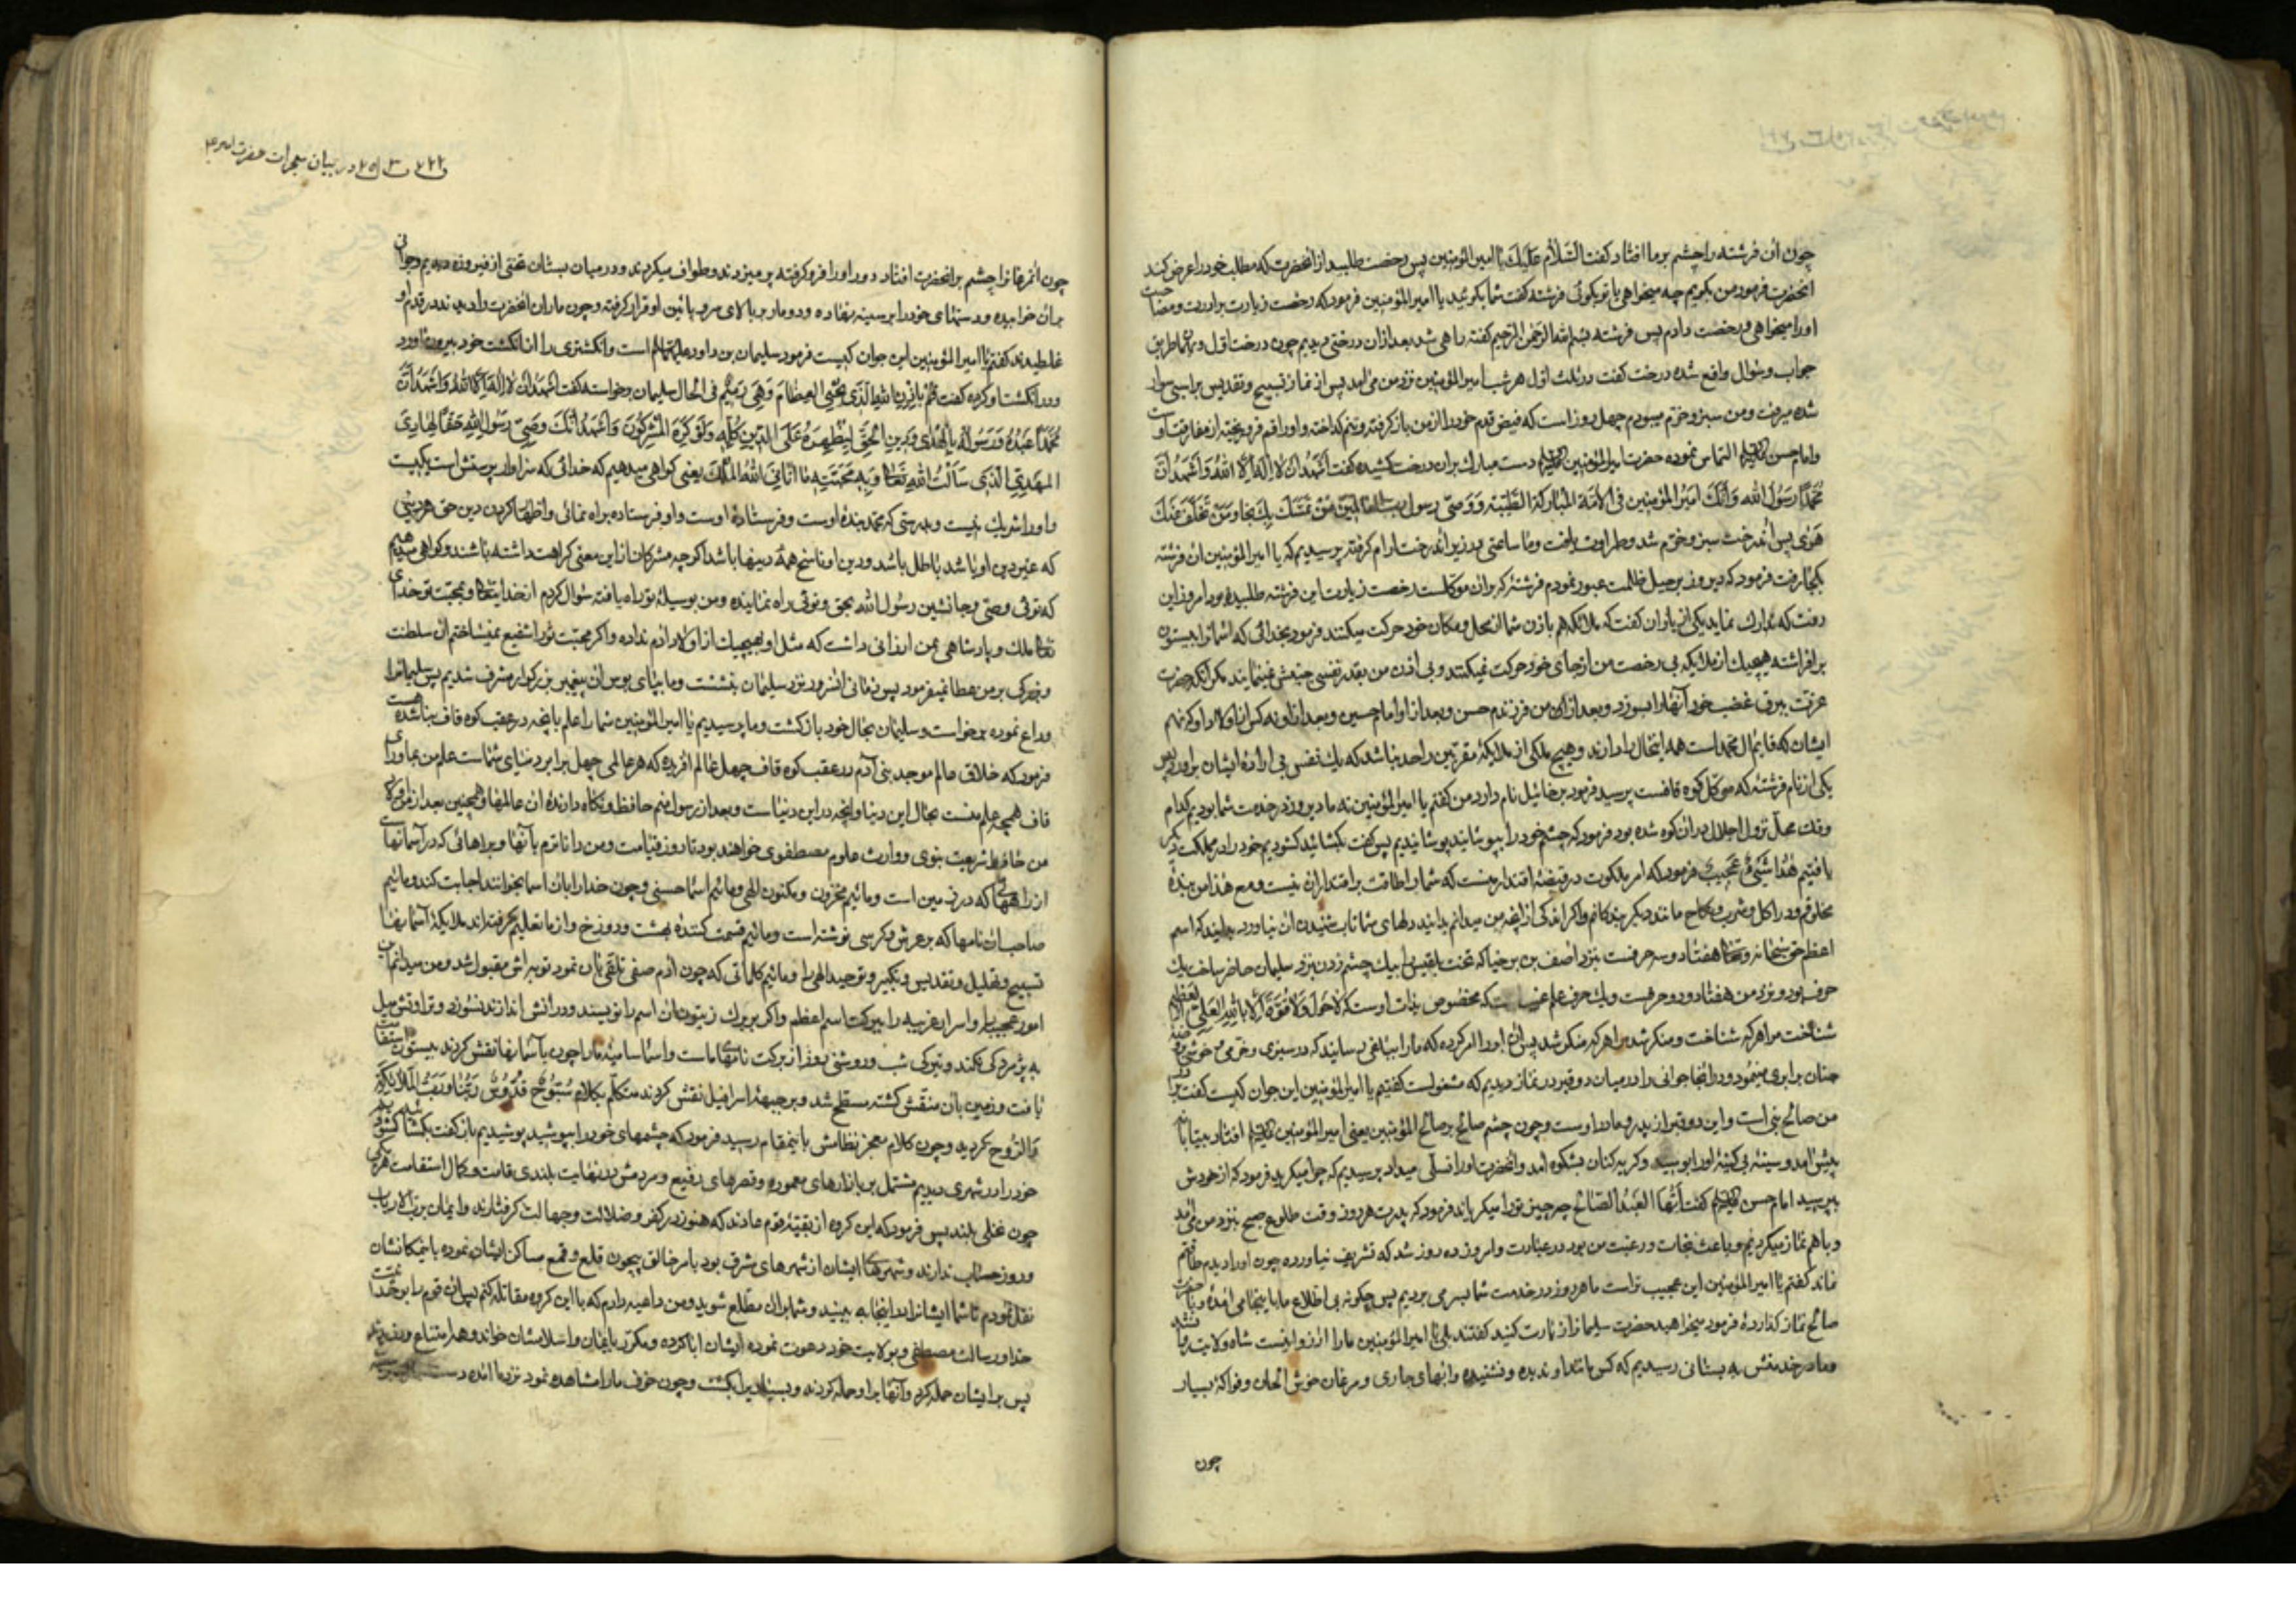 چون آن فرشته را چشم بر ما افتاد کفت السَّلامُ عَلَیکَ یا امیر المؤمنین پس رخصت طلبید از انحضرت که مطالب خود را عرض کند
انحضرت فرمود من بکویم چه میخواهی یا تو بکوئی فرشته کفت شما بکوئید یا امیر المؤمنین فرمود که رخصت زیارت برادرت و مصاحبت
او را میخواهی رخصت دادم پس فرشته بسم الله الرحمن الرحیم کفته راهی شد بعد از ان درختی دیدیم چون درخت اول و بهمان طریق
جواب و سؤال واقع شده درخت کفت در ثلث اول هر شب امیر المؤمنین نزد من می امد پس از نماز و تسبیح و تقدیس بر اسبی سوار
شده میرفت و من سبز و خرم میبودم چهل روز است که فیض قدم خود را از من باز کرفته و تنم کداخته و اوراقم فرو ریخته از مفارقت او
و امام حسن التماس نموده حضرت امیر المؤمنین دست مبارک بر ان درخت کشیده کفت اَشهَدُ اَن لا اِلهَ اِلَّا اللهُ وَاَشهَدُ اَنَّ
مُحَمَّدًا رَسُولُ الله وَاَنَّکَ اَمیرُ المؤمنین فی الاُمَّة المُبارکة الطَّیِّبَة وَوَصیّ رسول رب العالمین مَن تَمَسَّکَ بِکَ نجا وَمَن تَخَلَّفَ عَنکَ
هَوٰی پس آن درخت سبز و خرم شد و طراوت یافت و ما ساعتی در زیر ان درخت ارام کرفته پرسیدیم که یا امیر المؤمنین ان فرشته
بکجا رفت فرمود که دیروز بر جبل ظلمت عبور نمودم فرشتهٔ که بر ان موکلست رخصت زیارت این فرشته طلبیده بود امروز این
رفت که تدارک نماید یکی از یاران کفت که ملائکه هم باذن شما از محل و مکان خود حرکت میکنند فرمود بخدائی که اسمانرا بیستون
بر افراشته هیچیک از ملایکه بی رخصت من از جای خود حرکت نمیکنند و بی اذن من بقدر نفسی جنبش نمینمایند مکر انکه حضرت
عزت ببرق غضب خود آنها را بسوزد و بعد از من فرزندم حسن و بعد از او امام حسین و بعد از او نه کس از اولاد او که نهم
ایشان که قایم ال محمد است همه اینحال را دارند و هیچ ملکی از ملایکهٔ مقربین را حد نباشد که یک نفس بی ارادهٔ ایشان براورد پس
یکی از نام فرشتهٔ که موکل کوه قافست پرسید فرمود برخائیل نام دارد من کفتم یا امیر المؤمنین نه ما دیروز در خدمت شما بودیم کدام
وقت محل نزول اجلال در ان کوه شده بود فرمود که چشم خود را بپوشانید پوشانیدیم پس کفت بکشائید کشودیم خود را در مملکت دیکر
یافتیم هٰذا شَیءٌ عَجیبٌ فرمود که امر ملکوت در قبضهٔ اقتدار منست که شما را طاقت بر اقتدار ان نیست و مع هذا من بندهٔ
مخلوقم و در اکل و شرب و نکاح مانند دیکر بندکانم و اکر اندکی از انچه من میدانم بدانید دلهای شما تاب شنیدن ان نیاورد بدانید که اسم
اعظم حق سبحانه و تعالی هفتاد و سه حرفست نزد اصف بن برخیا که تخت بلقیس را بیک چشم زدن نزد سلیمان حاضر ساخت یک
حرف بود و نزد من هفتاد و دو حرفست و یک حرف علم که مخصوص بذات اوست که لاحَولَ وَلا قُوَّةَ اِلّا بِاللهِ العَلِیِّ العَظیم
شناخت مرا هر که شناخت و منکر شد مرا هر که منکر شد پس ان ابر را امر کرده که ما را بباغی رسانید که در سبزی و خرمی و خوشی روضهٔ
جنان برابری مینمود و در انجا جوانی را در میان دو قبر در نماز دیدیم که مشغولست کفتیم یا امیر المؤمنین این جوان کیست کفت برادر
من صالح نبی است و این دو قبر از پدر و مادر اوست و چون چشم صالح بر صالح المؤمنین یعنی امیر المؤمنین افتاد بیتابانه
پیش امد و سینهٔ بی کینهٔ او را بوسید و کریه کنان بشکوه امد و انحضرت او را تسلی میداد پرسیدیم که چرا میکرید فرمود که از خودش
بپرسید امام حسن کفت اَیُّهَا العَبدُ الصّالِح چه چیز تو را میکریاند فرمود که پدرت هر روز وقت طلوع صبح بنزد من می امد
و با هم نماز میکردیم و باعث نجات و رغبت من بود در عبادت و امروز ده روز شد که تشریف نیاورده چون او را دیدم طاقتم
نماند کفتم یا امیر المؤمنین این عجیب تر است ما هر روز در خدمت شما بسر می بردیم پس چکونه بی اطلاع ما باینجا می امده و با حضرت
صالح نماز کذارده فرمود میخواهید حضرت سلیمانرا زیارت کنید کفتند بلی یا امیر المؤمنین ما را ارزو اینست شاه ولایت روانه شد
و ما در خدمتش به بستانی رسیدیم که کس مانند او ندیده و نشنیده و انهار جاری و مرغان خوش الحان و فواکهٔ بسیار
چون
در بیان معجزات حضرت امیر ع
چون انمرغانرا چشم بر انحضرت افتاد دور او را فرو کرفته پر میزدند و طواف میکردند و در میان بستان تختی از فیروزه دیدیم و جوانی
بر ان خوابیده و دستهای خود را بر سینه نهاده و دو مار بر بالای سر و پائین او قرار کرفته و چون ماران انحضرت را دیدند در قدم او
غلطیدند کفتم یا امیر المؤمنین این جوان کیست فرمود سلیمان بن داود است و انکشتری را از انکشت خود بیرون اورد
و در انکشت او کرده کفت قُم بِاِذنِ اللهِ الَّذی یُحیِی العِظامَ وَهِیَ رَمیم فی الحال سلیمان برخواسته کفت اَشهَدُ اَن لا اِلهَ اِلّا اللهُ وَاَشهَدُ اَنَّ
مُحَمَّدًا عَبدُهُ وَرَسولُهُ بِالهُدٰی وَدینِ الحَقِّ لِیُظهِرَهُ عَلَی الدّینِ کُلِّه وَلَو کَرِهَ المُشرِکُونَ وَاَشهَدُ اَنَّکَ وَصِیُّ رَسولِ اللهِ حَقًّا الهادِی
المَهدِیّ الَّذی سَاَلتُ اللهَ تَعالی وَبِمَحَبَّتِهِ ما اَتانِیَ اللهُ المُلکَ یعنی کواهی میدهیم که خدائی که سزاوار پرستش است یکیست
و او را شریک نیست و بدرستی که محمد بندهٔ اوست و فرستادهٔ اوست و او فرستاده براه نمائی و اظهار کردن دین حق هر دینی
که غیر دین او باشد باطل باشد و دین او ناسخ همهٔ دینها باشد اکر چه مشرکان از این معنی کراهت داشته باشند و کواهی میدهیم
که توئی وصی و جانشین رسول الله بحق و توئی راه نماینده و من بوسیلهٔ تو راه یافته سؤال کردم از خدایتعالی و بمحبت تو خدای
تعالی ملک و پادشاهی بمن ارزانی داشت که مثل او بهیچیک از اولاد ادم نداده و اکر محبت تو را شفیع نمیساختم ان سلطنت
و بزرکی بر من عطا نمیفرمود پس زمانی انسرور نزد سلیمان بنشست و ما بپای بوس ان پیغمبر بزرکوار مشرف شدیم پس سلیمانرا
وداع نموده برخواست و سلیمان بحال خود باز کشت و ما پرسیدیم یا امیر المؤمنین شما را علم بانچه در عقب کوه قاف هست
فرمود که خلاق عالم موجد بنی آدم در عقب کوه قاف چهل عالم افریده که هر عالمی چهل برابر دنیای شماست علم من بماورای
قاف همچه علم منست بحال این دنیا و انچه در این دنیاست و بعد از رسول منم حافظ و نکاه دارندهٔ ان عالمها و همچنین بعد از من اولاد
من حافظ شریعت نبوی و وارث علوم مصطفوی خواهند بود تا روز قیامت و من داناترم بآنها و براههائی که در آسمانها
از راههائی که در زمین است و مائیم مخزون و مکنون الهی و مائیم اسماء حسنی و چون خدا را بان اسما بخوانند اجابت کند و مائیم
صاحبان نامها که بر عرش و کرسی نوشته است و مائیم قسمت کنندهٔ بهشت و دوزخ و از ما تعلیم کرفته اند ملایکهٔ آسمانها
تسبیح و تهلیل و تقدیس و تکبیر و توحید الهی را و مائیم کلماتی که چون ادم صفی تلقی بان نمود توبه اش مقبول شد و من میدانم
امور عجیبه را و اسرار غریبه را ببرکت اسم اعظم و اکر بر برک زیتون ان اسم را نویسند و در آتش اندازند نسوزد و تراوتش میل
به پژمردکی نکند و تیرکی شب و روشنی روز از برکت نامهای ماست و اسماء سامیهٔ ما را چون بآسمانها نقش کردند بیستون استقامت
یافت و زمین بان منقش کشته مسطح شد و بر جبههٔ اسرافیل نقش کردند متکلم بکلام سُبّوحٌ قُدّوسٌ رَبُّنا وَرَبُّ المَلائِکَةِ
وَالرّوح کردید و چون کلام معجز نظامش باینمقام رسید فرمود که چشمهای خود را بپوشید پوشیدیم باز کفت بکشائید کشودیم
خود را در شهری دیدیم مشتمل بر بازارهای معموره و قصرهای رفیع و مردمش در نهایت بلندی قامت و کمال استقامت هر یکی
چون نخلی بلند پس فرمود که این کروه از بقیهٔ قوم عادند که هنوز در کفر و ضلالت و جهالت کرفتارند و ایمان برب الارباب
و روز حساب ندارند و شهرهای ایشان از شهرهای مشرق بود بامر خالق بیچون قلع و قمع مساکن ایشان نموده باینمکانشان
نقل نمودم تا شما ایشانرا در اینجا ببینید و شما بران مطلع شوید و من داعیه دارم که با این کروه مقاتله کنم پس ان قوم را بوحدانیت
خدا و رسالت مصطفی و بولایت خود دعوت نموده ایشان ابا کرده و مکرر بایمان و اسلامشان خواند و هر امتناع
پس بر ایشان حمله کرد و آنها بر او حمله کردند و بسیاری را بکشت و چون خوف ما را مشاهده نمود نزد ما امده